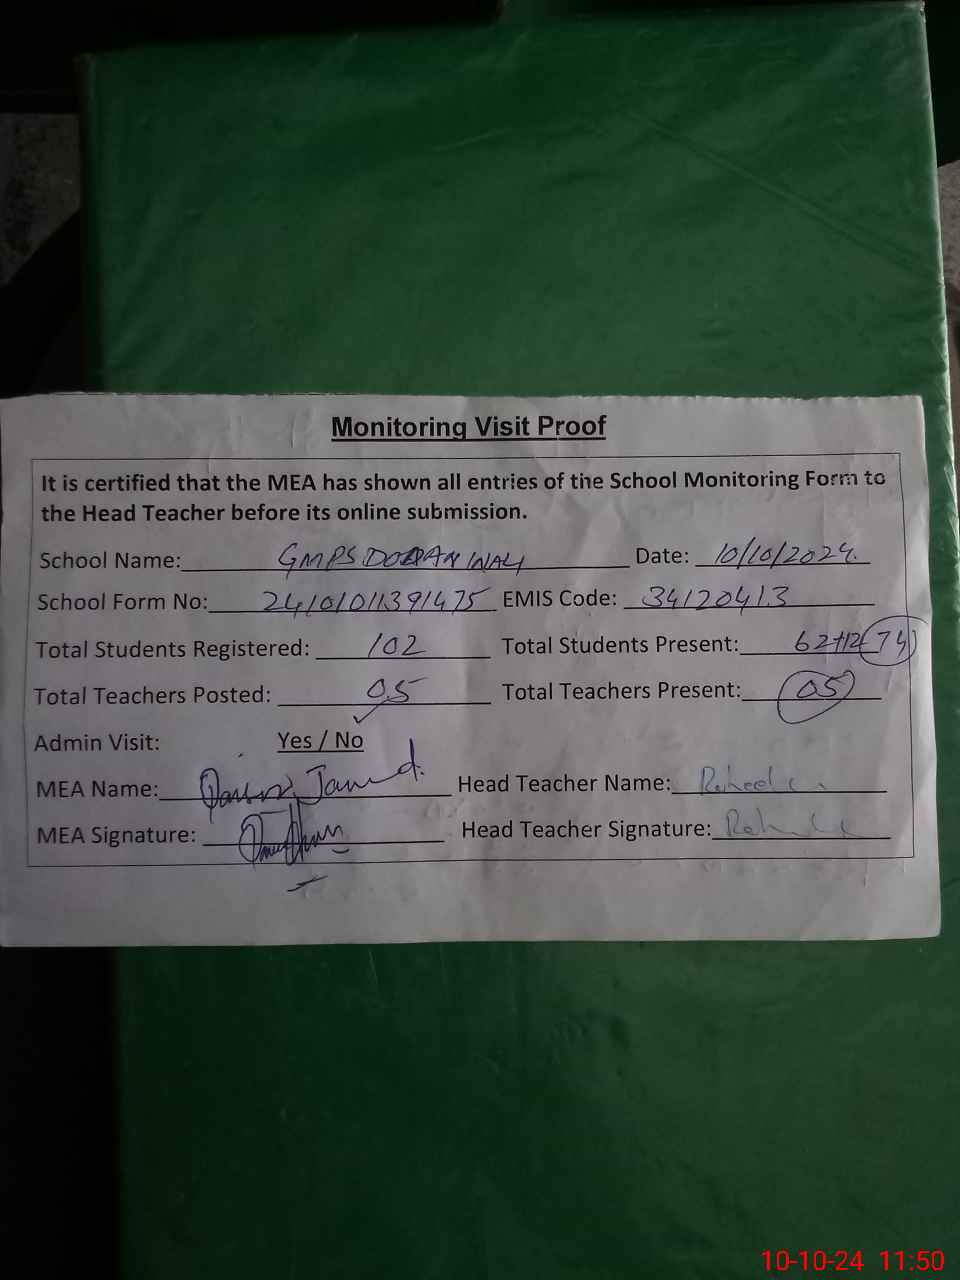 Monitoring Visit Proof
It is certified that the MEA has shown all entries of the School Monitoring Form to
the Head Teacher before its online submission.
School Name: GMPS DOGRAN WALI Date: 10/10/2024.
School Form No: 24101011391475 EMIS Code: 34120413
Total Students Registered: 102 Total Students Present: 62+12(74)
Total Teachers Posted: 05 Total Teachers Present: 05
Admin Visit: Yes / No
MEA Name: Javed. Head Teacher Name: Raheela
MEA Signature: Head Teacher Signature:
10-10-24 11:50